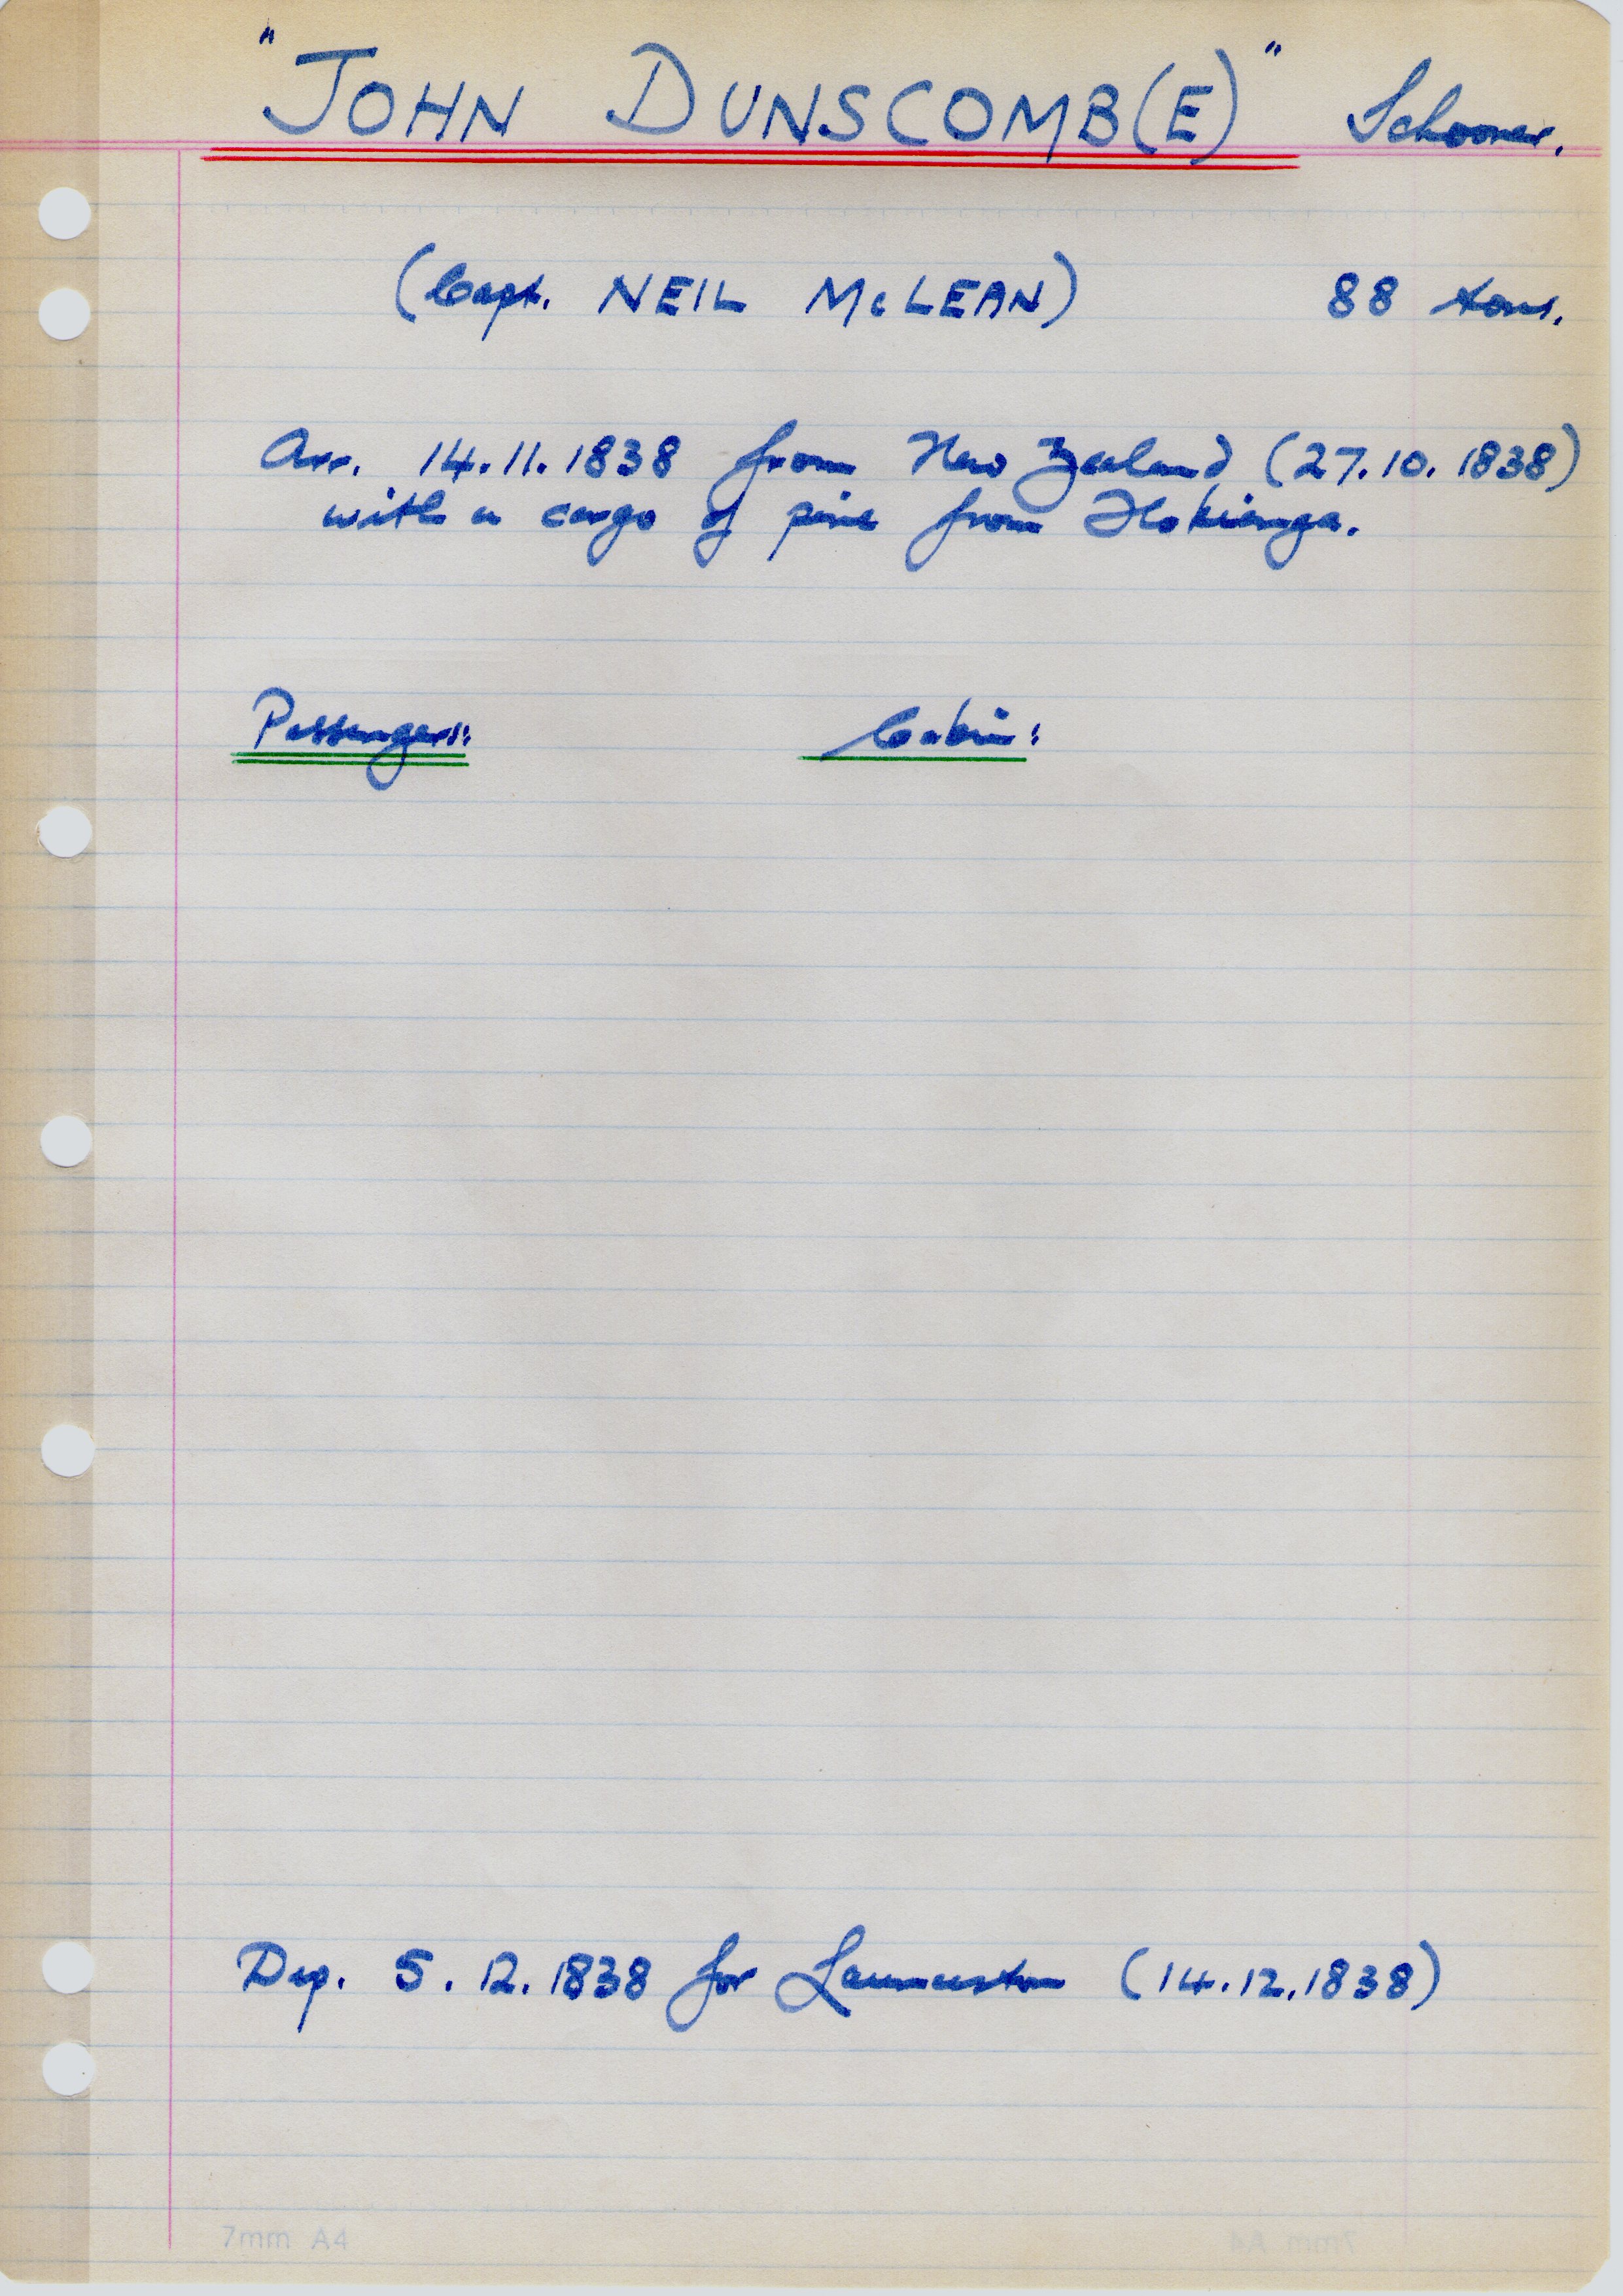 "JOHN DUNSCOMB(E)" Schooner.
(Capt. NEIL McLEAN) 88 tons.
Arr. 14.11.1838 from New Zealand (27.10.1838)
with a cargo of pine from Hokianga.
Passengers: Cabin:
Dep. 5.12.1838 for Launceston (14.12.1838)
7mm A4